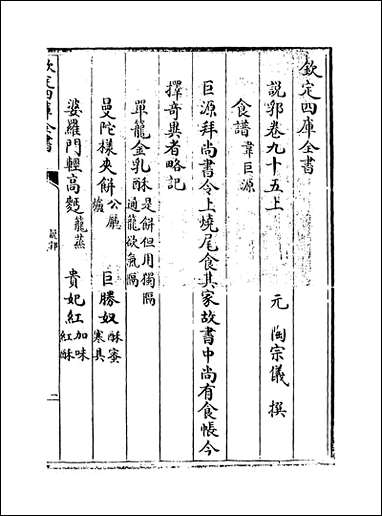 欽定四庫全書
說郛卷九十五上
元 陶宗儀 撰
食譜 韋巨源
巨源拜尚書令上燒尾食其家故書中尚有食帳今
擇奇異者略記
單籠金乳酥 是餅但用獨隔
通籠欲氣隔
曼陀樣夾餅 公廳
爐
巨勝奴 酥蜜
寒具
婆羅門輕高麪 籠蒸
貴妃紅 加味
紅酥
欽定四庫全書
說郛
一